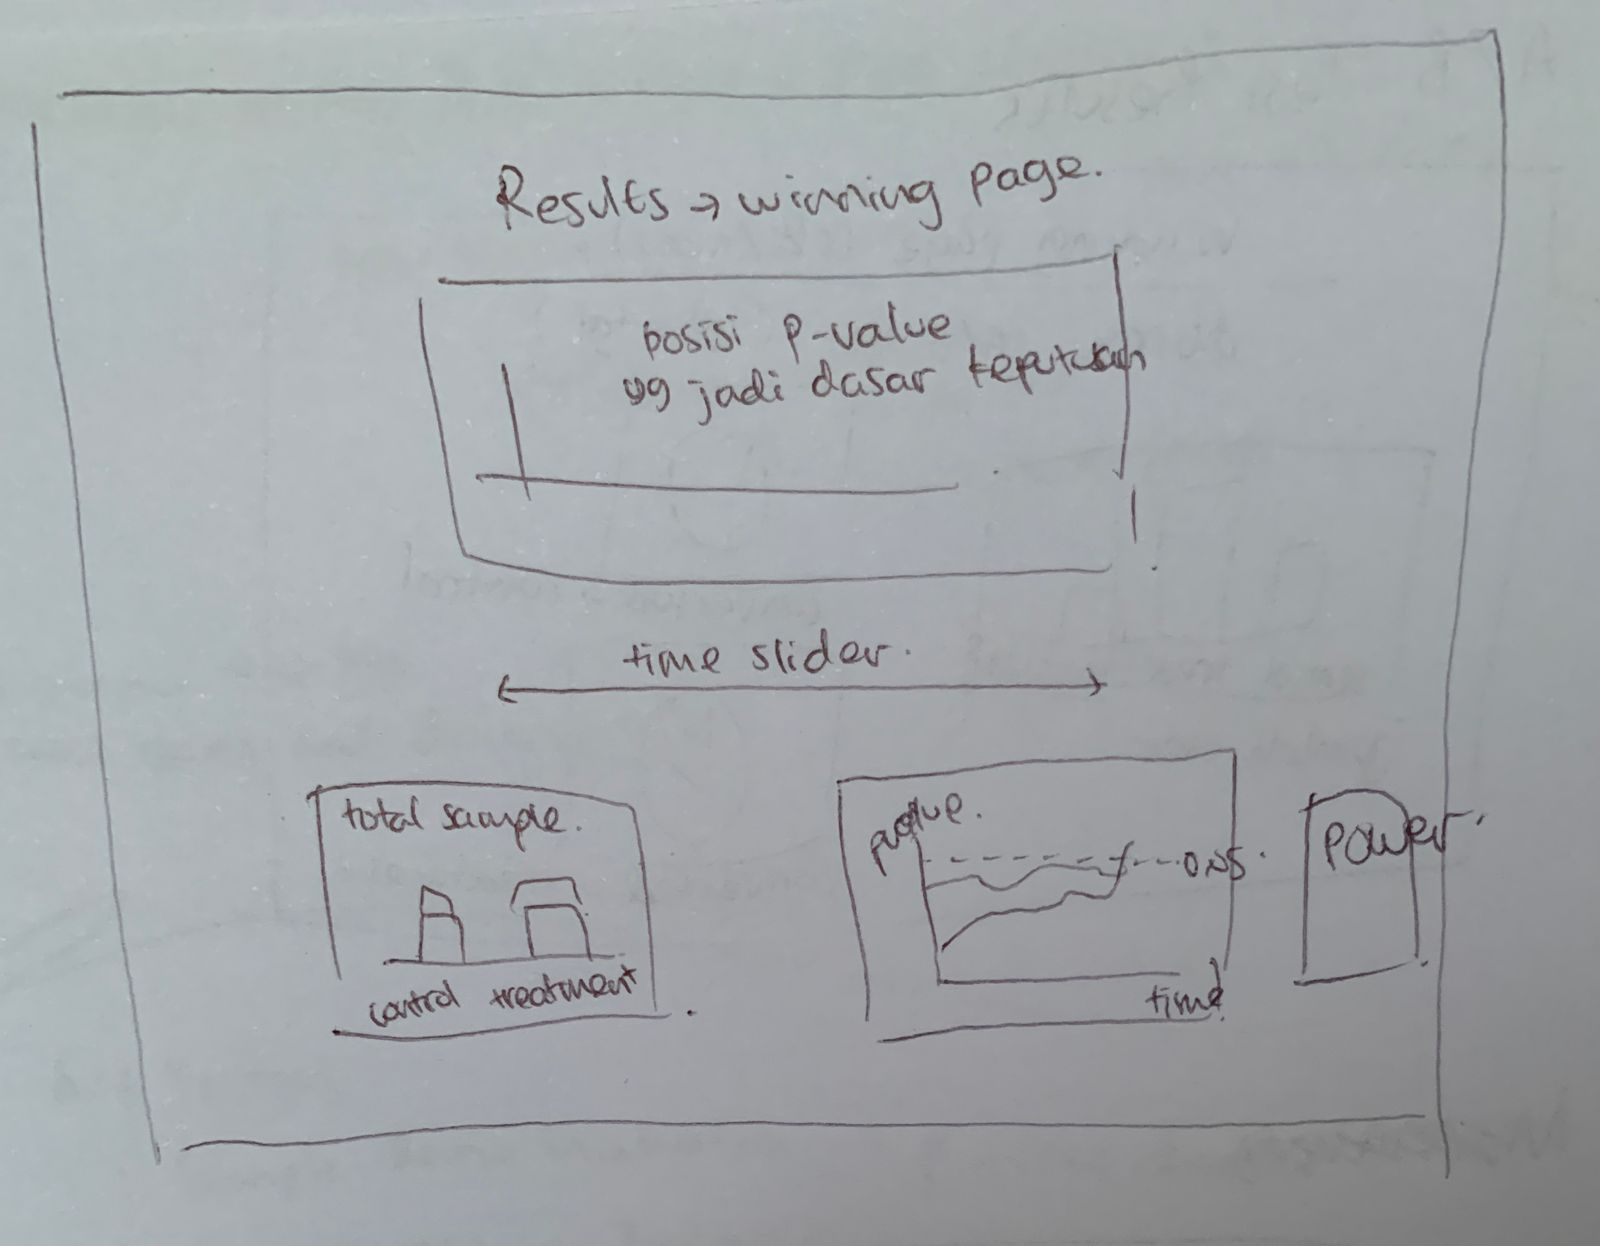 Results → winning page.
posisi p-value
yg jadi dasar keputusan
time slider.
total sample.
control treatment
pvalue.
0.05
time
power.